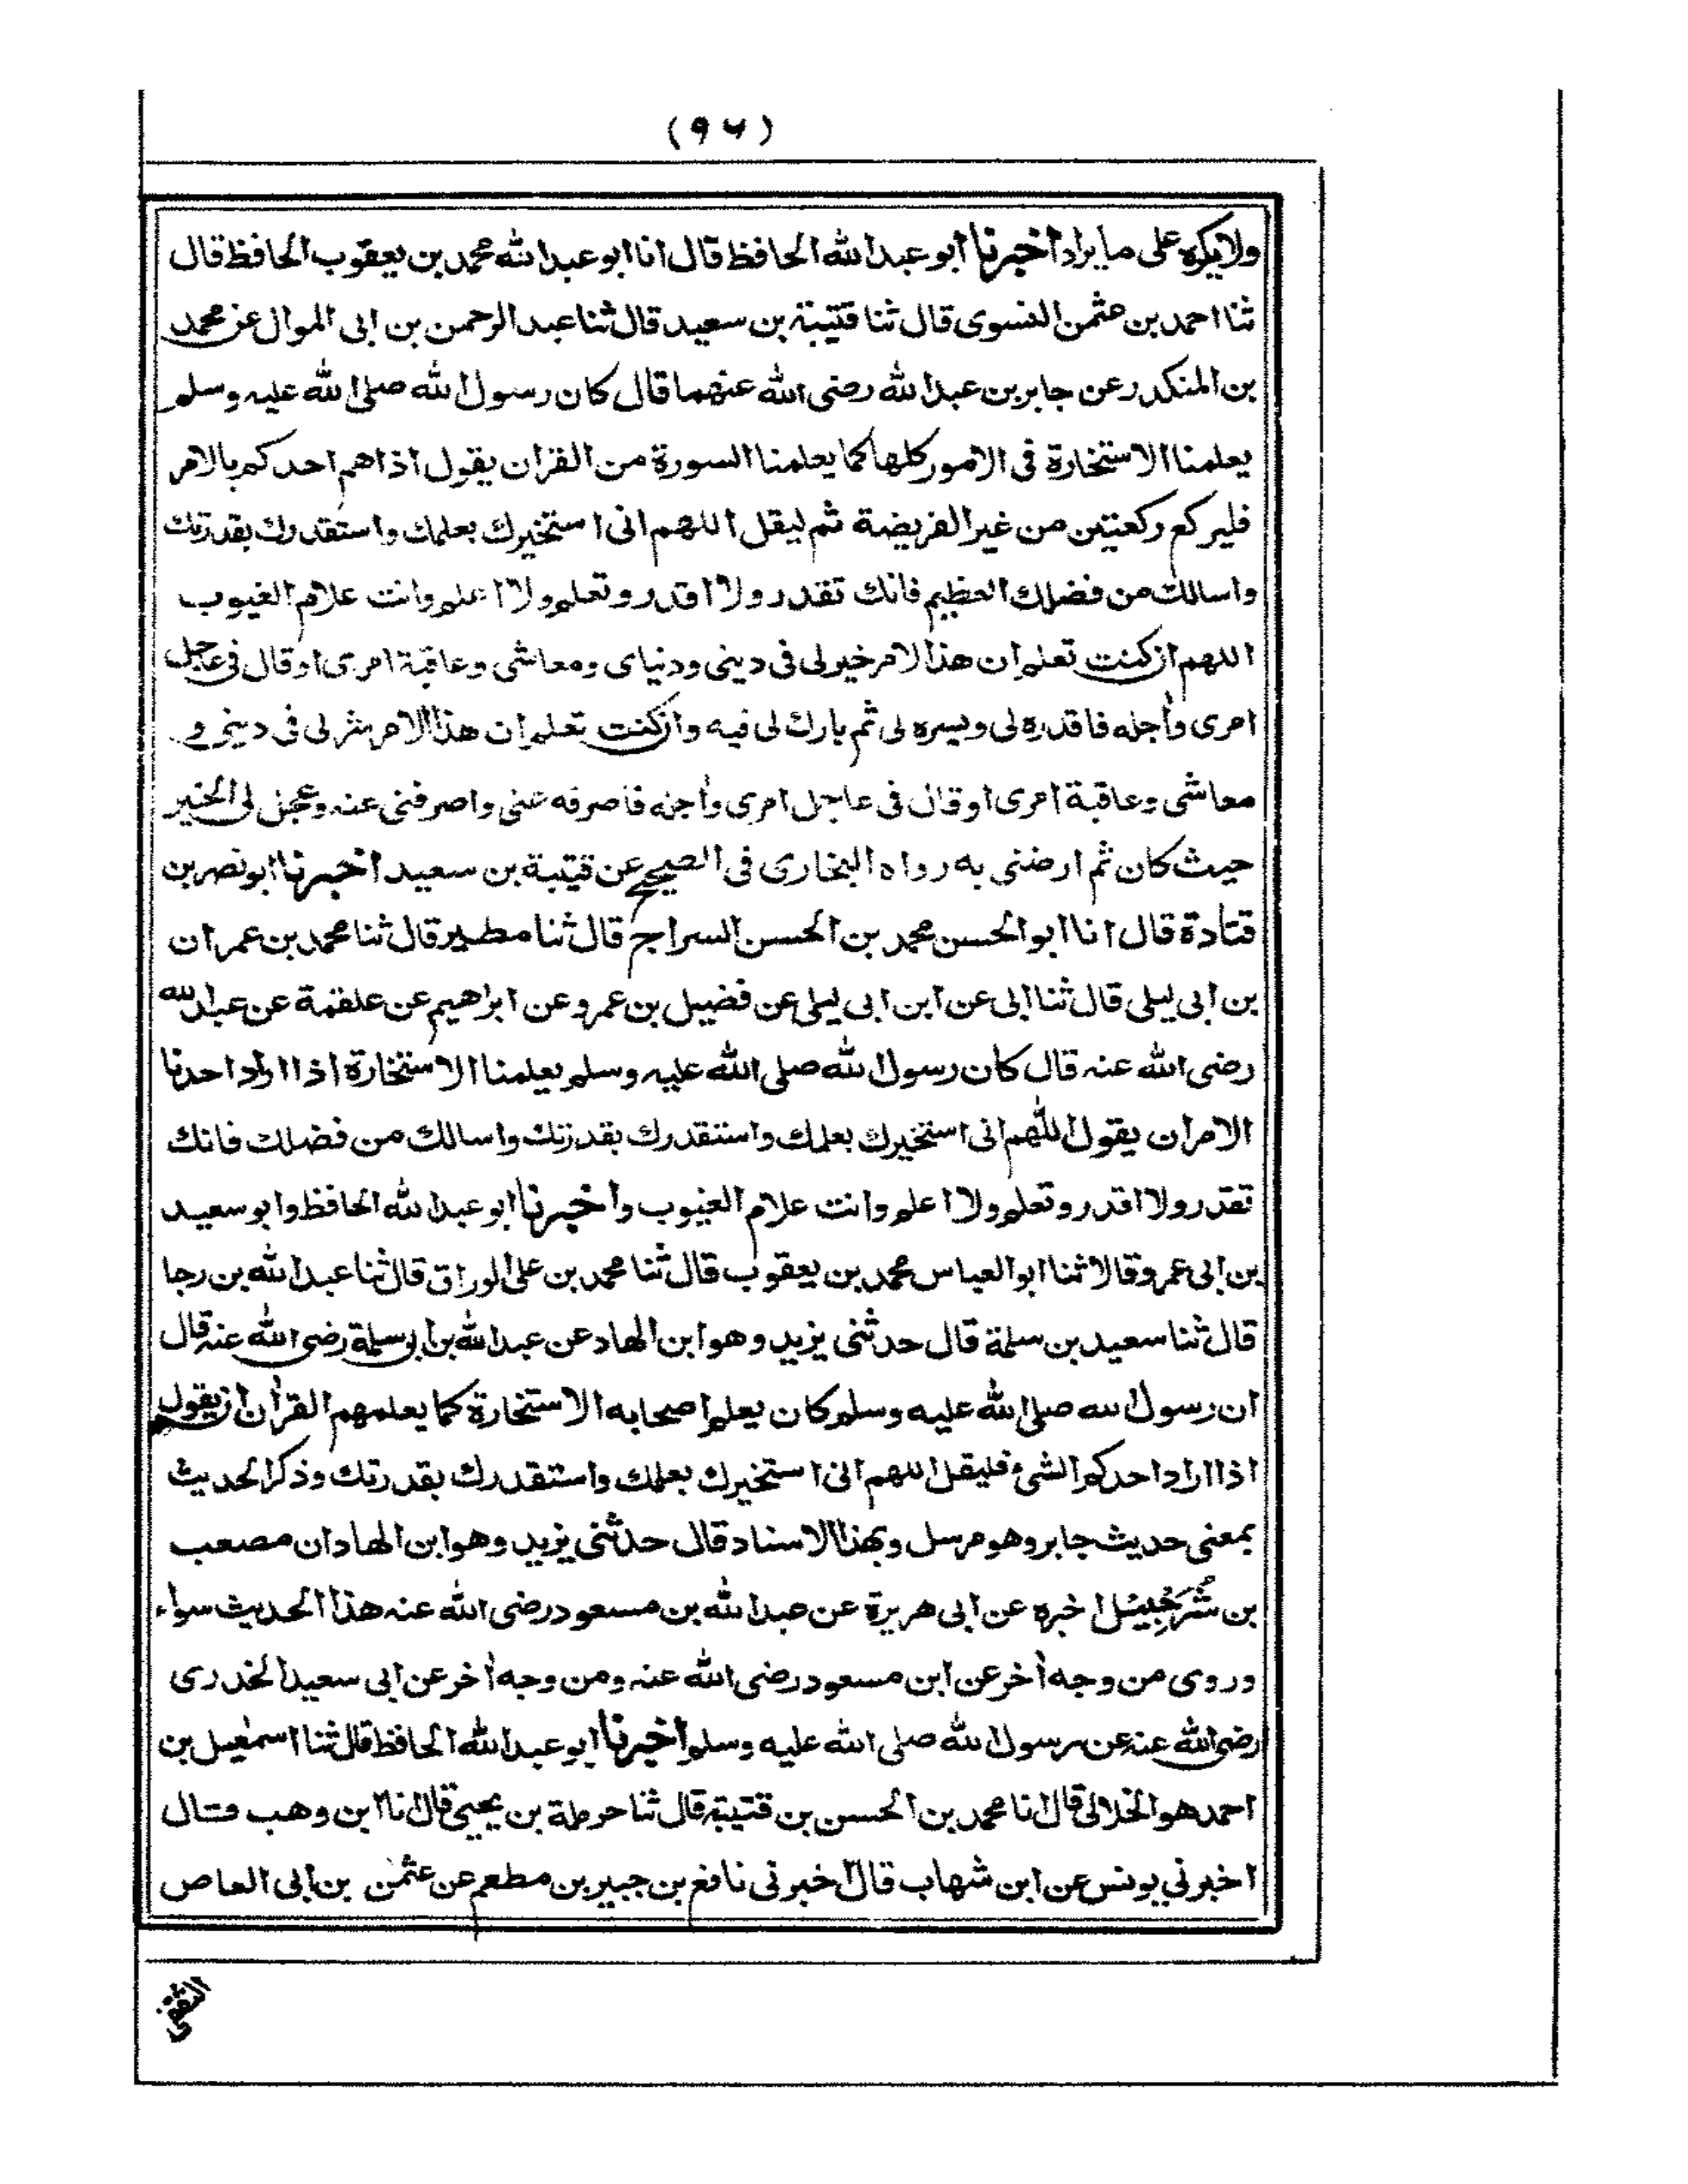 (٩٦)
ولا يكره على ما يراد أخبرنا أبو عبد الله الحافظ قال انا ابو عبد الله محمد بن يعقوب الحافظ قال
ثنا احمد بن عثمن النسوى قال ثنا قتيبة بن سعيد قال ثنا عبد الرحمن بن ابى الموال عن محمد
بن المنكدر عن جابر بن عبد الله رضى الله عنهما قال كان رسول الله صلى الله عليه وسلم
يعلمنا الاستخارة فى الامور كلها كما يعلمنا السورة من القران يقول اذا هم احدكم بالامر
فليركع ركعتين من غير الفريضة ثم ليقل اللهم انى استخيرك بعلمك واستقدرك بقدرتك
واسالك من فضلك العظيم فانك تقدر ولا اقدر وتعلم ولا اعلم وانت علام الغيوب
اللهم ان كنت تعلم ان هذا الامر خير لى فى دينى ودنياى ومعاشى وعاقبة امرى او قال فى عاجل
امرى وأجله فاقدره لى ويسره لى ثم بارك لى فيه وان كنت تعلم ان هذا الامر شر لى فى دينى و
معاشى وعاقبة امرى او قال فى عاجل امرى وأجله فاصرفه عنى واصرفنى عنه وعجل لى الخير
حيث كان ثم ارضنى به رواه البخارى فى الصحيح عن قتيبة بن سعيد اخبرنا ابو نصر بن
قتادة قال انا ابو الحسن محمد بن الحسن السراج قال ثنا مطير قال ثنا محمد بن عمران
بن ابى ليلى قال ثنا ابى عن ابن ابى ليلى عن فضيل بن عمرو عن ابراهيم عن علقمة عن عبد الله
رضى الله عنه قال كان رسول الله صلى الله عليه وسلم يعلمنا الاستخارة اذا اراد احدنا
الامر ان يقول اللهم انى استخيرك بعلمك واستقدرك بقدرتك واسالك من فضلك فانك
تقدر ولا اقدر وتعلم ولا اعلم وانت علام الغيوب وأخبرنا ابو عبد الله الحافظ وابو سعيد
بن ابى عمرو قالا ثنا ابو العباس محمد بن يعقوب قال ثنا محمد بن على الوراق قال ثنا عبد الله بن رجا
قال ثنا سعيد بن سلمة قال حدثنى يزيد وهو ابن الهاد عن عبد الله بن ابى سلمة رضى الله عنه قال
ان رسول الله صلى الله عليه وسلم كان يعلم اصحابه الاستخارة كما يعلمهم القرأن ان يقول
اذا اراد احدكم الشئ فليقل اللهم انى استخيرك بعلمك واستقدرك بقدرتك وذكر الحديث
بمعنى حديث جابر وهو مرسل وبهذا الاسناد قال حدثنى يزيد وهو ابن الهاد ان مصعب
بن شُرَحْبِيْل اخبره عن ابى هريرة عن عبد الله بن مسعود رضى الله عنه هذا الحديث سواء
وروى من وجه أخر عن ابن مسعود رضى الله عنه ومن وجه أخر عن ابى سعيد الخدرى
رضى الله عنه عن رسول الله صلى الله عليه وسلم أخبرنا ابو عبد الله الحافظ قال ثنا اسمعيل بن
احمد هو الخلالى قال انا محمد بن الحسن بن قتيبة قال ثنا حرملة بن يحيى قال انا ابن وهب قال
اخبرني يونس عن ابن شهاب قال اخبرنى نافع بن جبير بن مطعم عن عثمن بن ابى العاص
الثقفى